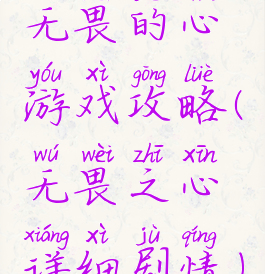 无畏的心
yóu xì gōng lüè
游戏攻略(
wú wèi zhī xīn
无畏之心
xiáng xì jù qíng
详细剧情)